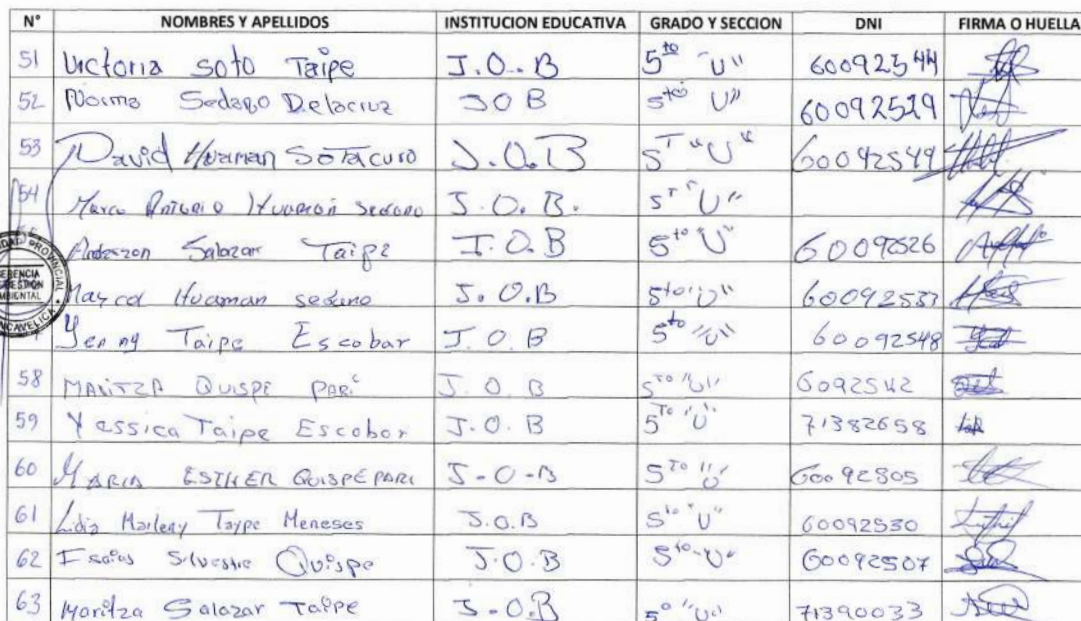 N° NOMBRES Y APELLIDOS INSTITUCION EDUCATIVA GRADO Y SECCION DNI FIRMA O HUELLA
51 Victoria soto Taipe J.O.B 5to "U" 60092544
52 Norma Sedano Delacruz JOB 5to U" 60092529
53 David Huaman Sotacuro J.O.B 5T "U" 60092549
54 Marco Antonio Huamán Sedano J.O.B. 5T "U"
Anderzon Salazar Taipe J.O.B 5to "U" 60092526
Maycol Huaman sedano J.O.B 5to "U" 60092533
Yenny Taipe Escobar J.O.B 5to "U" 60092548
58 MARITZA QUISPE PARi J.O.B 5To "U" 6092542
59 Yessica Taipe Escobar J.O.B 5To "U" 71382658
60 MARIA ESTHER QUISPE PARI J-O-B 5To "U" 60092505
61 Lidia Marleny Taype Meneses J.O.B 5to "U" 60092530
62 Isaias Silvestre Quispe J.O.B 5to "U" 60092507
63 Maritza Salazar Taipe J-O.B 5° "U" 71390033
GERENCIA
GESTION
AMBIENTAL